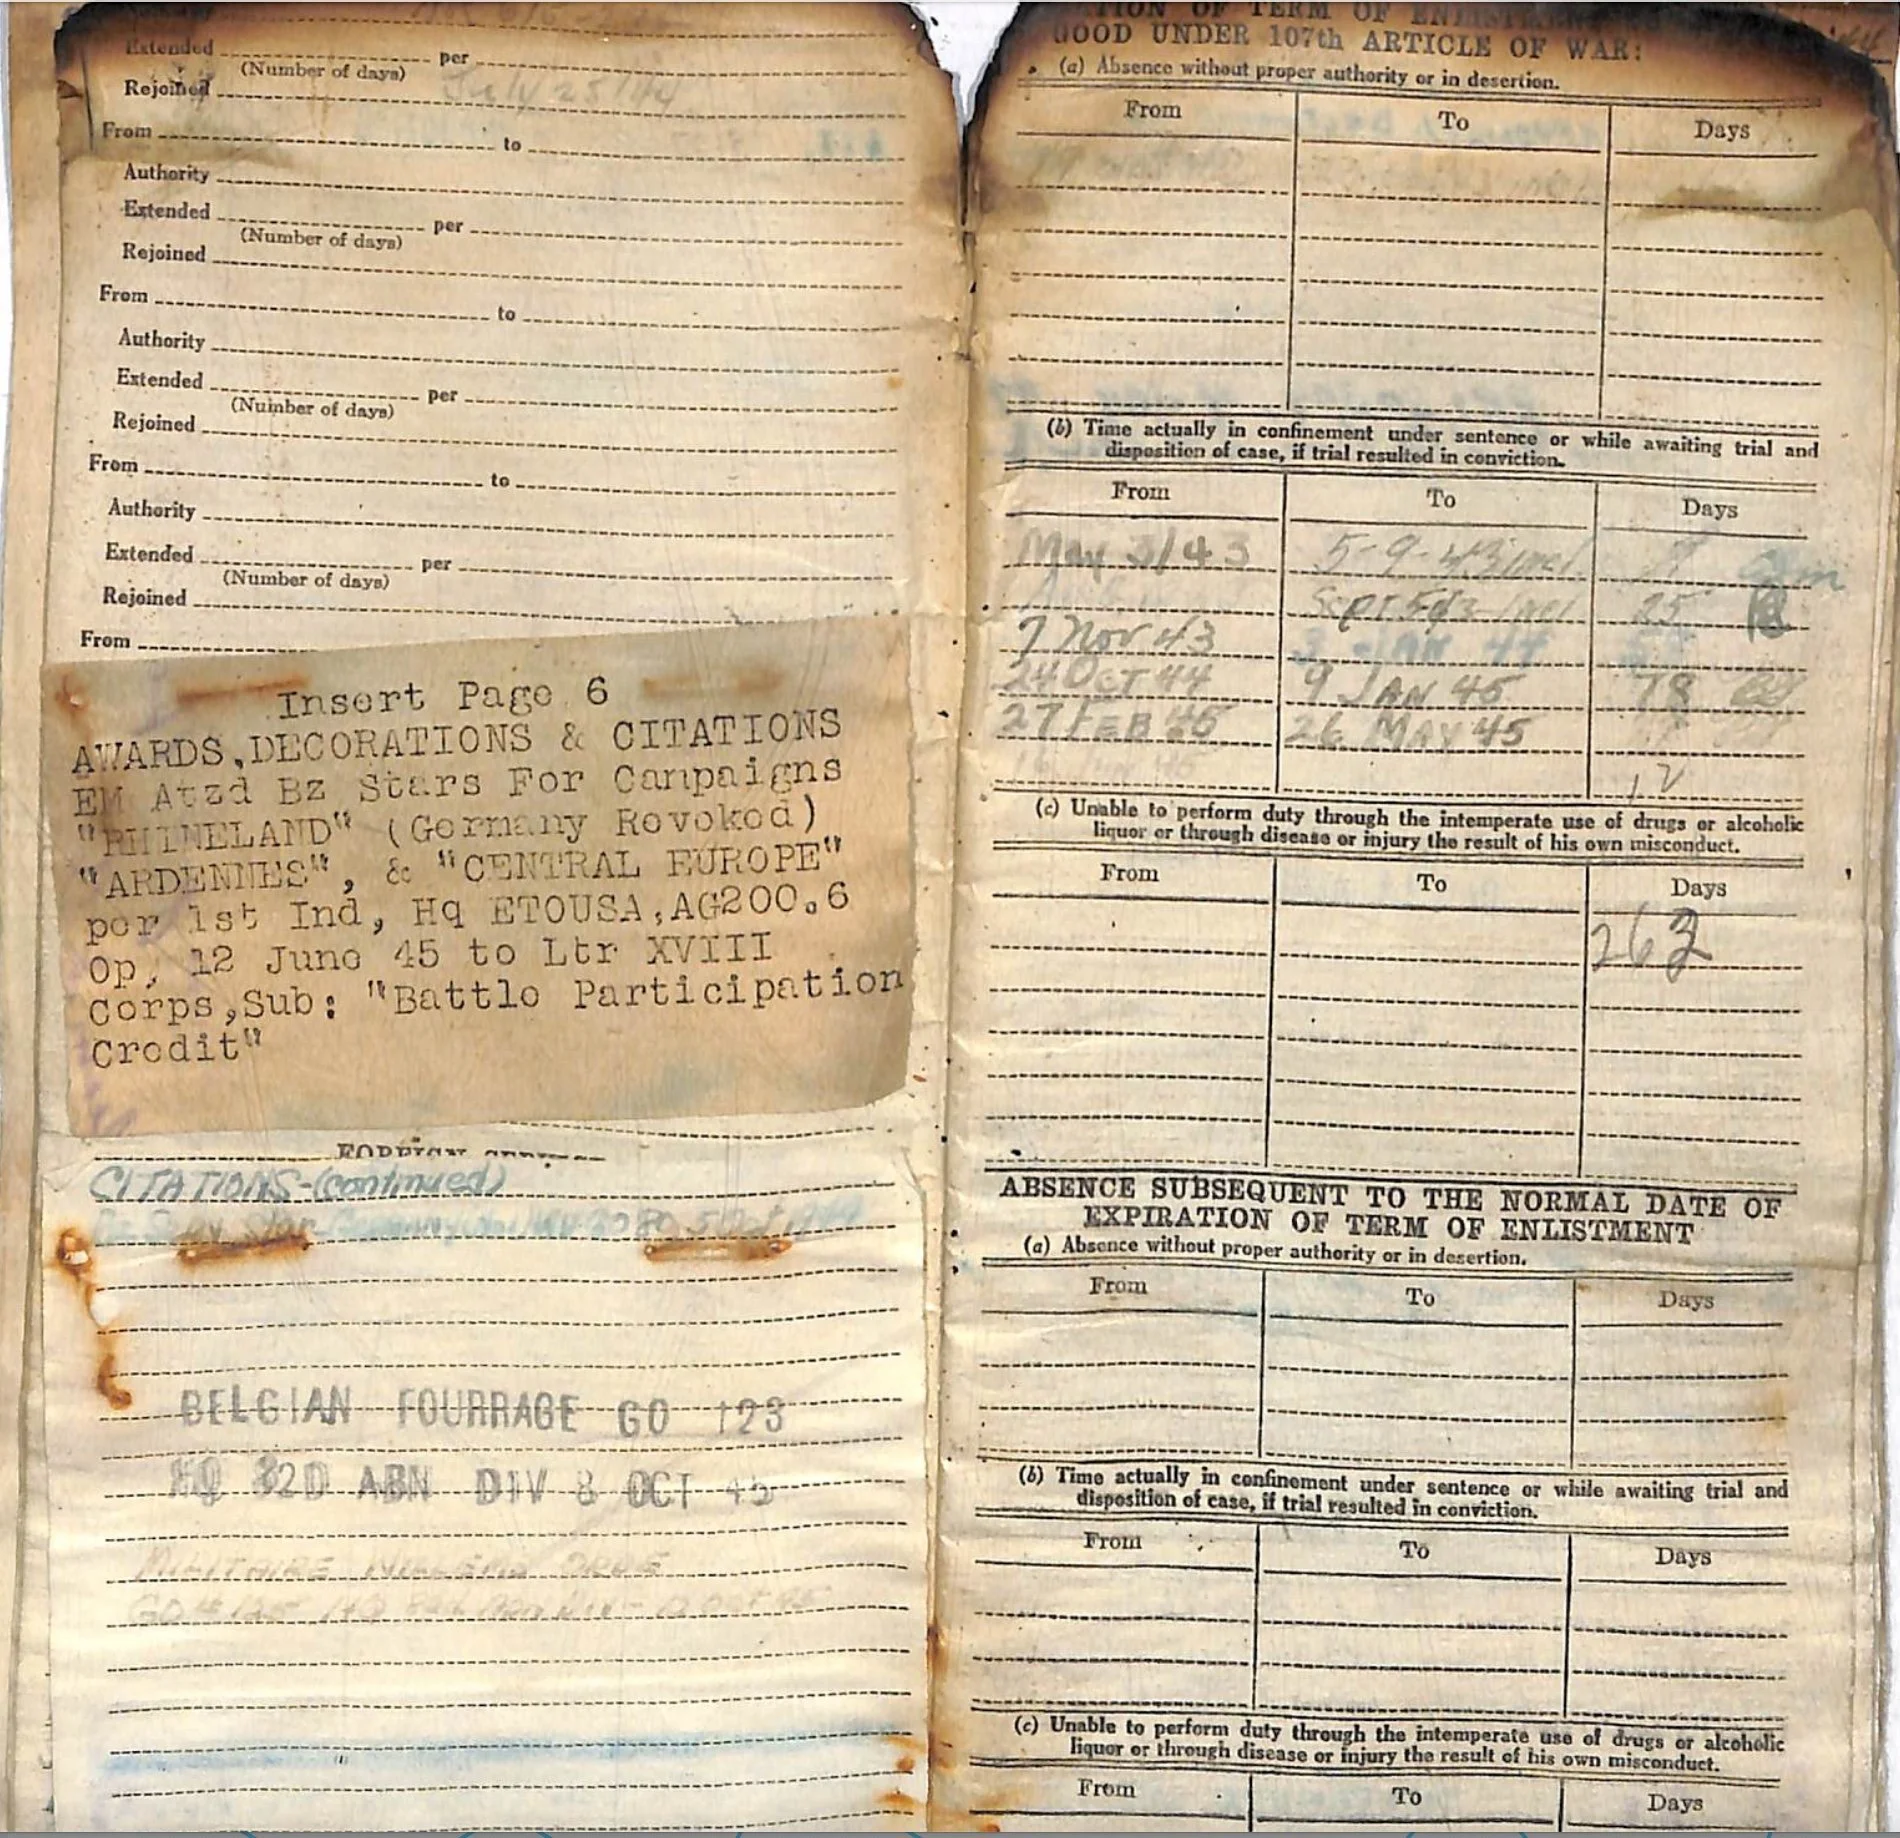 Extended per
(Number of days)
Rejoined July 25/44
From to
Authority
Extended per
(Number of days)
Rejoined
From to
Authority
Extended per
(Number of days)
Rejoined
From to
Authority
Extended per
(Number of days)
Rejoined
From
Insert Page 6
AWARDS,DECORATIONS & CITATIONS
EM Atzd Bz Stars For Campaigns
"RHINELAND" (Germany Revoked)
"ARDENNES", & "CENTRAL EUROPE"
per 1st Ind, Hq ETOUSA,AG200.6
Op, 12 June 45 to Ltr XVIII
Corps,Sub: "Battle Participation
Credit"
FOREIGN
CITATIONS-(continued)
Star Germany
BELGIAN FOURRAGE GO 123
HQ 82D ABN DIV 8 OCT 45
MILITAIRE
GO
OF TERM OF ENLISTMENT
GOOD UNDER 107th ARTICLE OF WAR:
(a) Absence without proper authority or in desertion.
From To Days
(b) Time actually in confinement under sentence or while awaiting trial and
disposition of case, if trial resulted in conviction.
From To Days
May 3/43 5-9-43 incl
Sept 5 incl 25
7 Nov 43 3 JAN 44
24 OCT 44 9 JAN 45 78
27 FEB 45 26 MAY 45
12
(c) Unable to perform duty through the intemperate use of drugs or alcoholic
liquor or through disease or injury the result of his own misconduct.
From To Days
263
ABSENCE SUBSEQUENT TO THE NORMAL DATE OF
EXPIRATION OF TERM OF ENLISTMENT
(a) Absence without proper authority or in desertion.
From To Days
(b) Time actually in confinement under sentence or while awaiting trial and
disposition of case, if trial resulted in conviction.
From To Days
(c) Unable to perform duty through the intemperate use of drugs or alcoholic
liquor or through disease or injury the result of his own misconduct.
From To Days